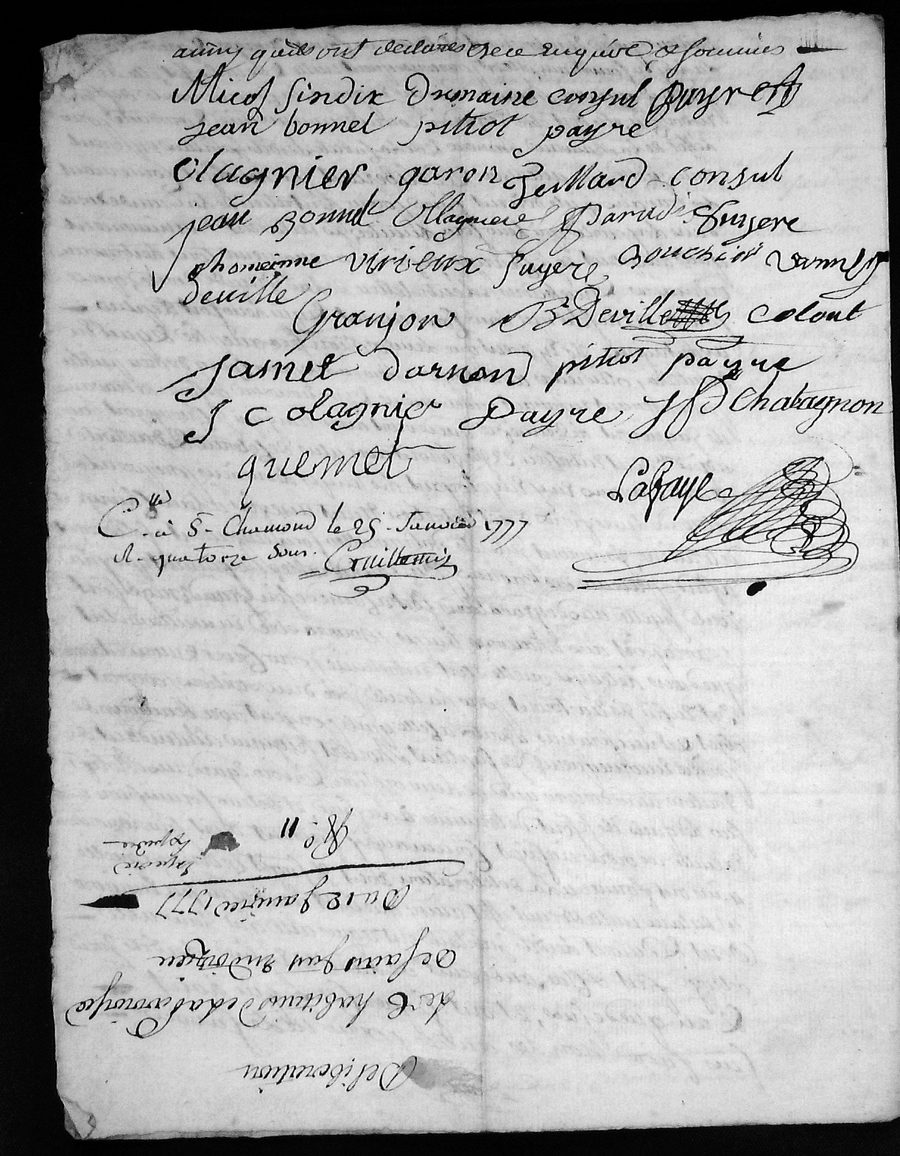 ainsy quils ont declarés de ce enquis & sommés
Micol sindix Dumaine consul payre
jean bonnel pitiot payre
Olagnier garon Jeillard consul
jean Bonnel Ollagniere Parud fuzere
thomeinne virieux fuzere Boucher
deville
Granjon B Deville colout
Jamet darnon pitiot payre
J C olagnier Payre JP Chatagnon
quemet
Lafaye
C.lle à St Chamond le 25 Janvier 1777
R. quatorze sous. Guillemin
Deliberation
des habitants de la parroisse
de saint jean
Du 12 Janvier 1777
No. 11
Expediée